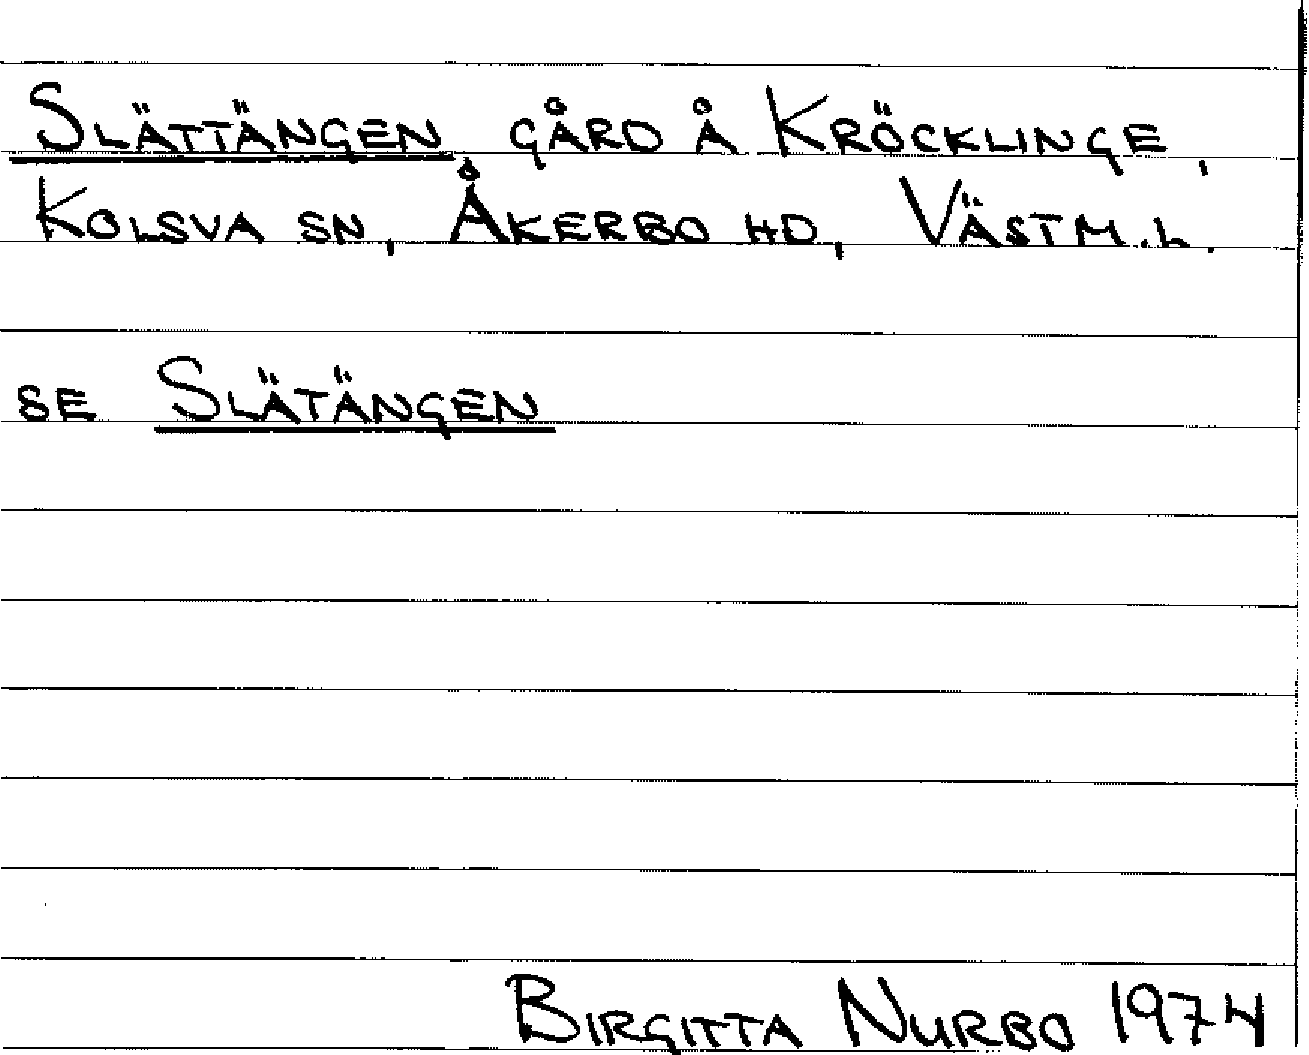 SLÄTTÄNGEN, GÅRD Å KRÖCKLINGE,
KOLSVA SN, ÅKERBO HD, VÄSTM.L.
SE SLÄTÄNGEN
BIRGITTA NURBO 1974